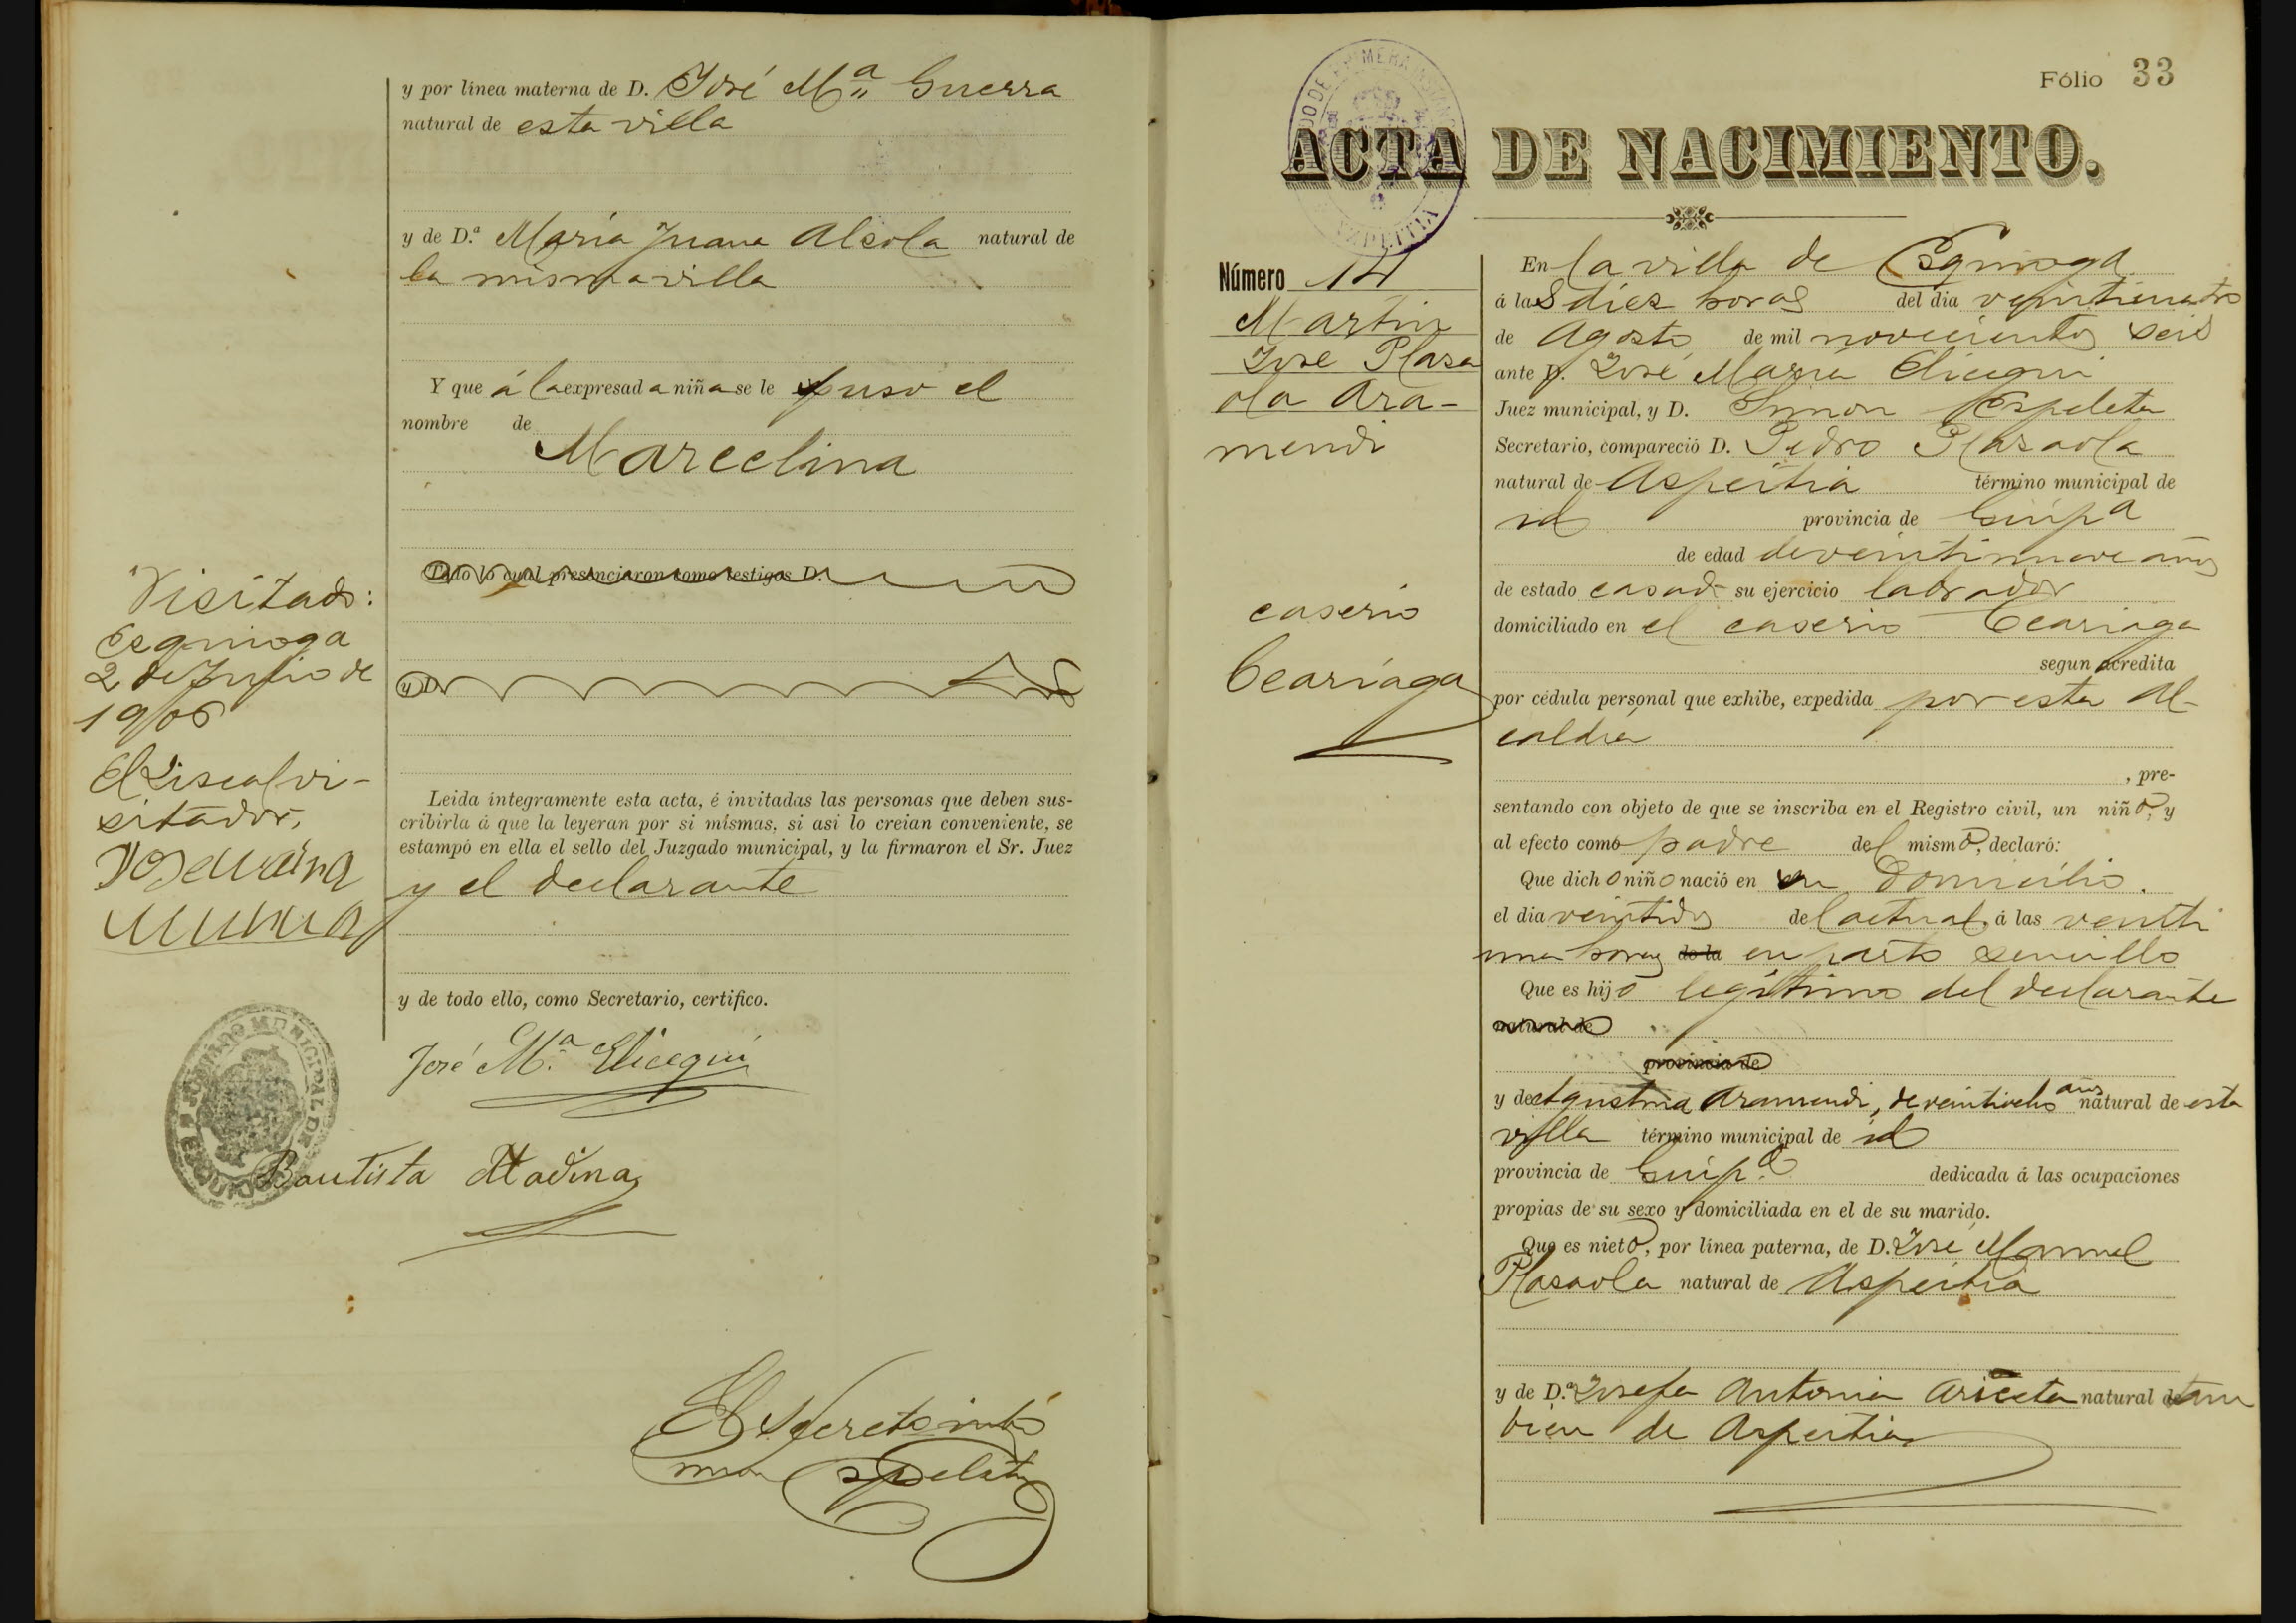 y por línea materna de D. José Mª Guerra
natural de esta villa
y de D.ª María Juana Alcola natural de
la misma villa
Y que á la expresada niña se le puso el
nombre de
Marcelina
Todo lo cual presenciaron como testigos D.
y D.
Leida íntegramente esta acta, é invitadas las personas que deben sus-
cribirla á que la leyeran por si mismas, si asi lo creian conveniente, se
estampó en ella el sello del Juzgado municipal, y la firmaron el Sr. Juez
y el declarante
y de todo ello, como Secretario, certifico.
José Mª Elicegui
Bautista Madina
El Secretº
Espeleta
Visitado:
Esquioga
2 de Julio de
1906
El Fiscal vi-
sitador,
JUZGADO MUNICIPAL DE
Fólio 33
JUZGADO DE PRIMERA INSTANCIA
AZPEITIA
ACTA DE NACIMIENTO.
Número 14
Martin
José Plasa
ola Ara-
mendi
caserio
Ceariaga
En la villa de Esquioga
á las diez horas del dia veinticuatro
de Agosto de mil novecientos seis
ante D. José María Elicegui
Juez municipal, y D. Simon Espeleta
Secretario, compareció D. Pedro Plasaola
natural de Aspeitia término municipal de
id provincia de Guipª
de edad de veintinueve años
de estado casado su ejercicio labrador
domiciliado en el caserio Ceariaga
segun acredita
por cédula personal que exhibe, expedida por esta Al-
caldia
, pre-
sentando con objeto de que se inscriba en el Registro civil, un niño, y
al efecto como padre del mismo, declaró:
Que dicho niño nació en su domicilio.
el dia veintidos del actual á las veinti
una horas de la en parto sencillo
Que es hijo legítimo del declarante
natural de
provincia de
y de Agustina Aramendi, de veintiocho años natural de esta
villa término municipal de id
provincia de Guipª dedicada á las ocupaciones
propias de su sexo y domiciliada en el de su marido.
Que es nieto, por línea paterna, de D. José Manuel
Plasaola natural de Aspeitia
y de D.ª Josefa Antonia Ariceta natural de tam
bien de Aspeitia